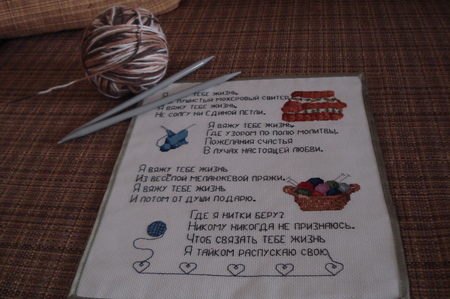 Я вяжу тебе жизнь
пушистый мохеровый свитер.
Я вяжу тебе жизнь
Не солгу ни единой петли.
Я вяжу тебе жизнь,
Где узором по полю молитвы,
Пожелания счастья
В лучах настоящей любви.
Я вяжу тебе жизнь
Из весёлой меланжевой пряжи.
Я вяжу тебе жизнь
И потом от души подарю.
Где я нитки беру?
Никому никогда не признаюсь.
Чтоб связать тебе жизнь
Я тайком распускаю свою.